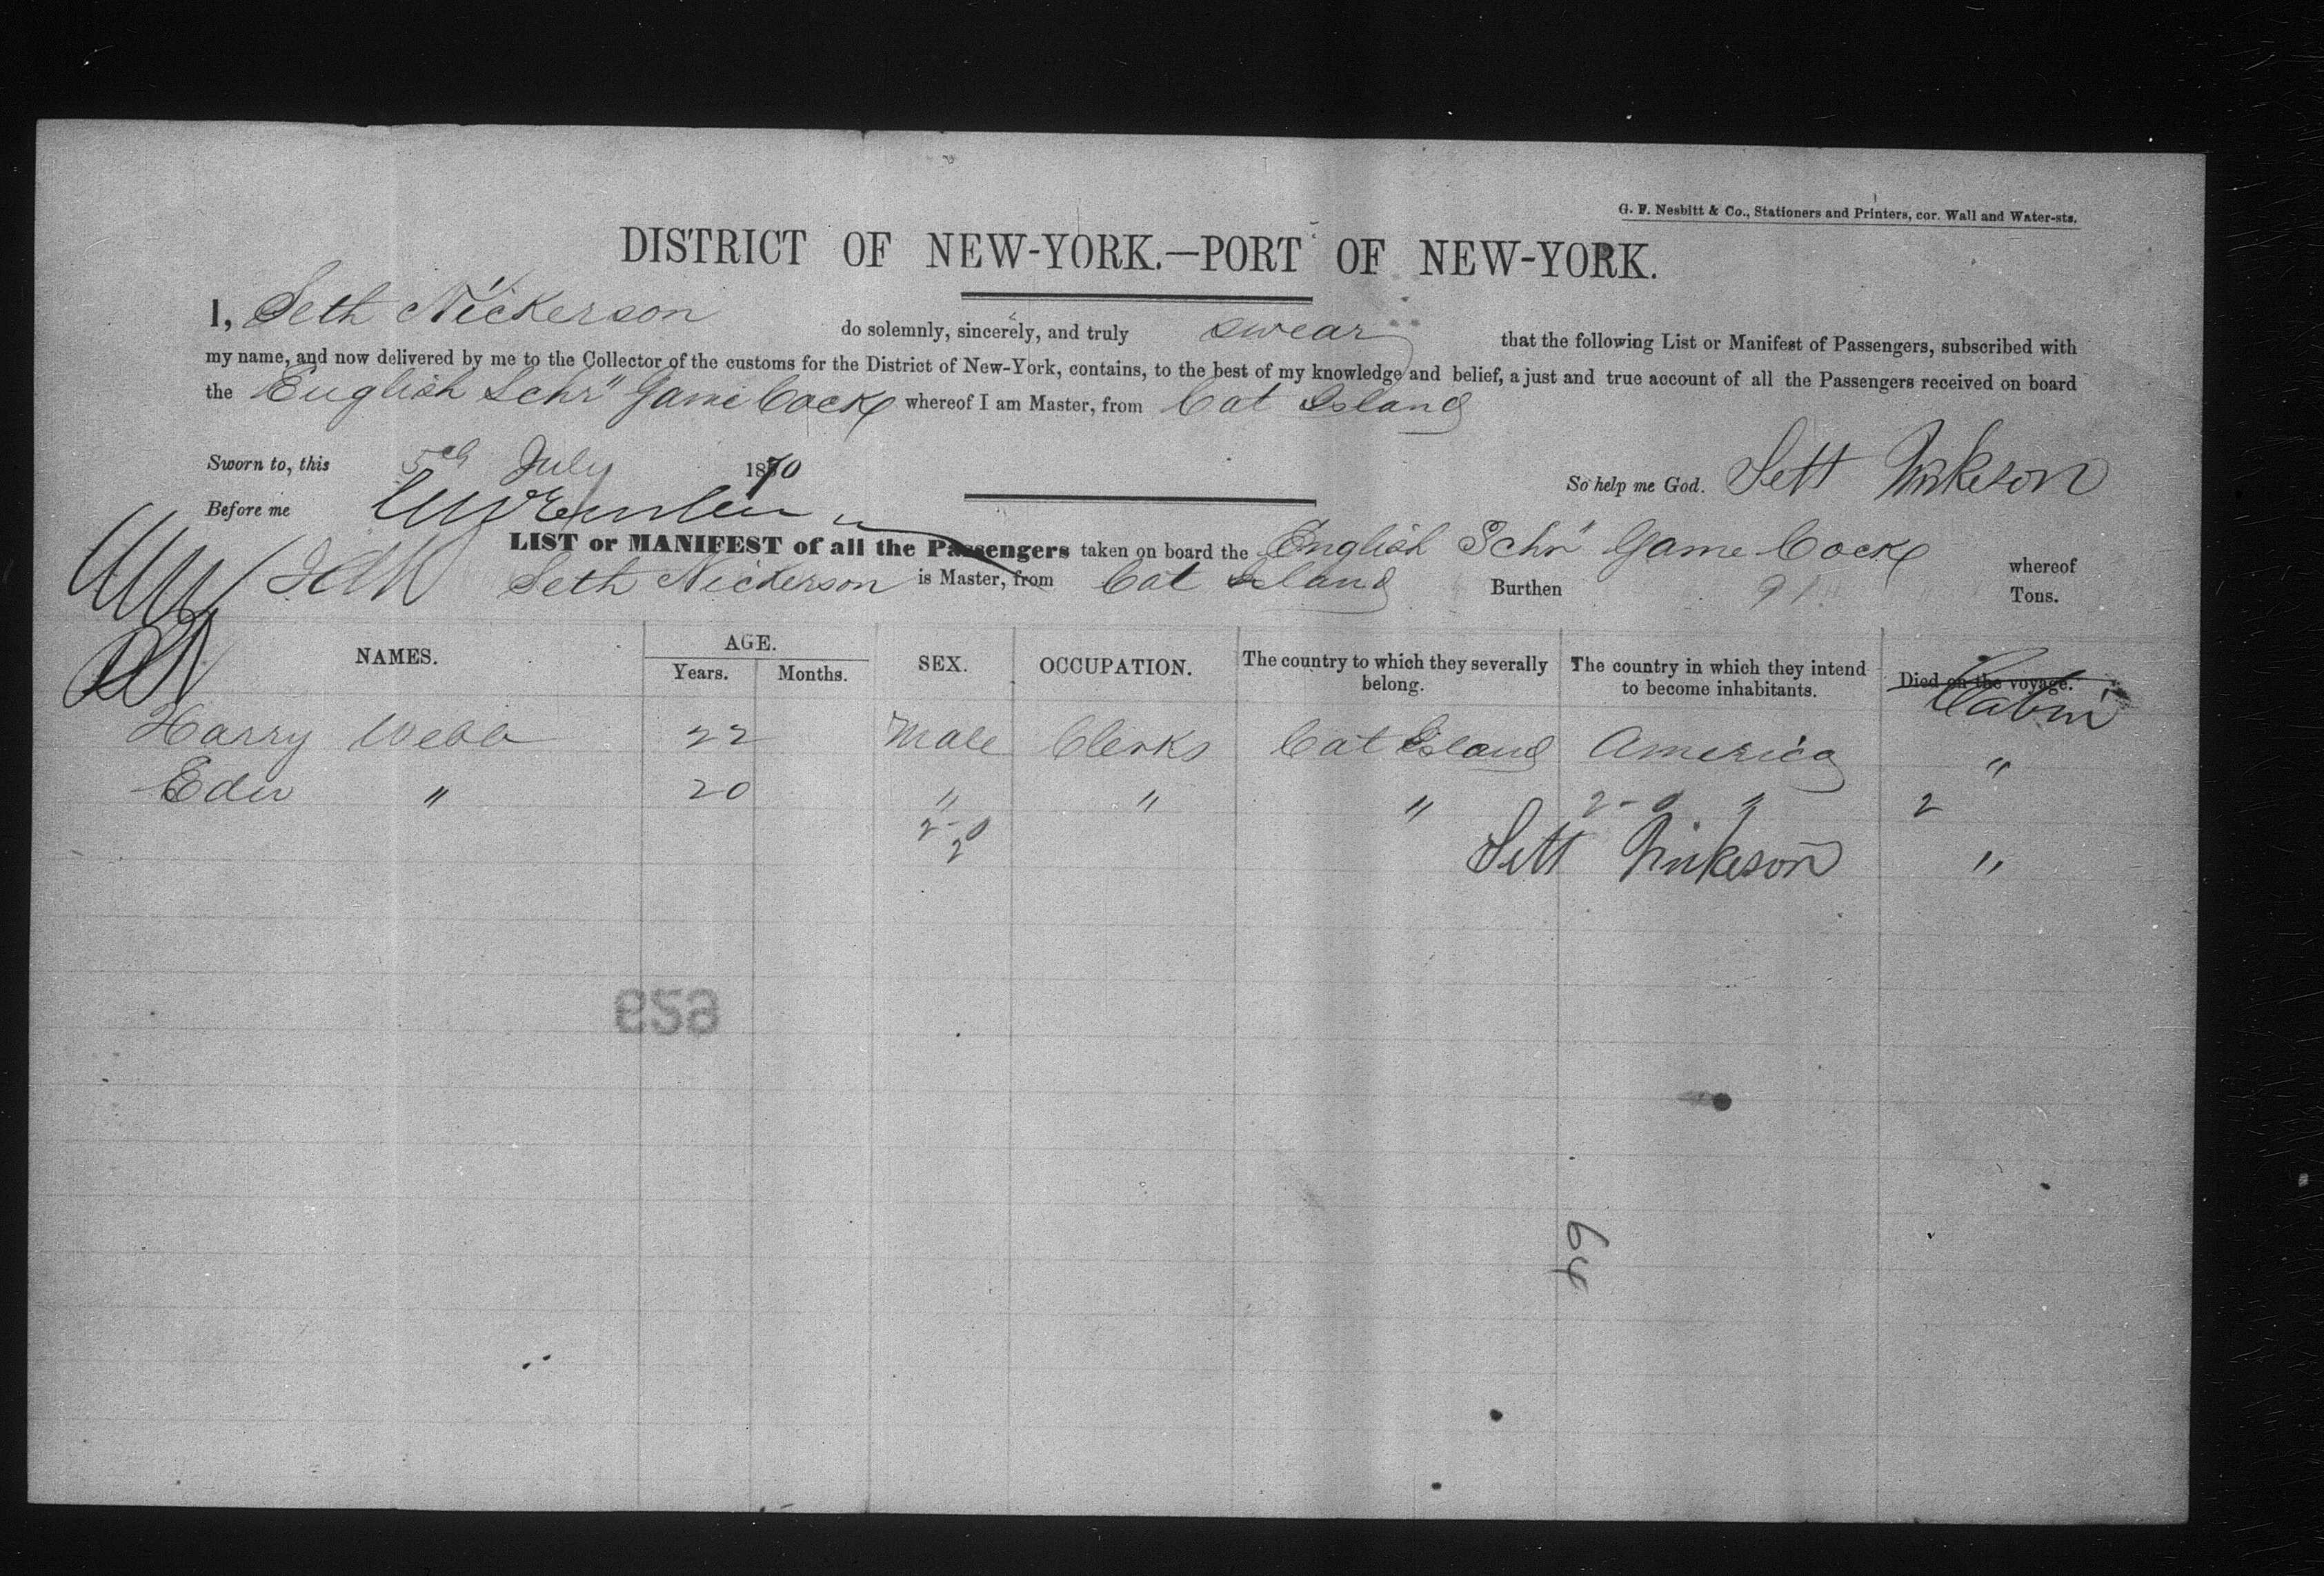 G. F. Nesbitt & Co., Stationers and Printers, cor. Wall and Water-sts.
DISTRICT OF NEW-YORK.—PORT OF NEW-YORK.
I, Seth Nickerson do solemnly, sincerely, and truly swear that the following List or Manifest of Passengers, subscribed with
my name, and now delivered by me to the Collector of the customs for the District of New-York, contains, to the best of my knowledge and belief, a just and true account of all the Passengers received on board
the English Schr " Game Cock whereof I am Master, from Cat Island
Sworn to, this 5th July 1870 So help me God. Sett Nickeson
Before me
LIST or MANIFEST of all the Passengers taken on board the English Schr " Game Cock whereof
Seth Nickerson is Master, from Cat Island Burthen 91 Tons.
NAMES. AGE. Years. Months. SEX. OCCUPATION. The country to which they severally belong. The country in which they intend to become inhabitants. Died on the voyage. Cabin
Harry Webb 22 Male Clerks Cat Island America "
Edw " 20 " " " 2-0 " 2
2-0
2
Sett Nickeson "
esa
64